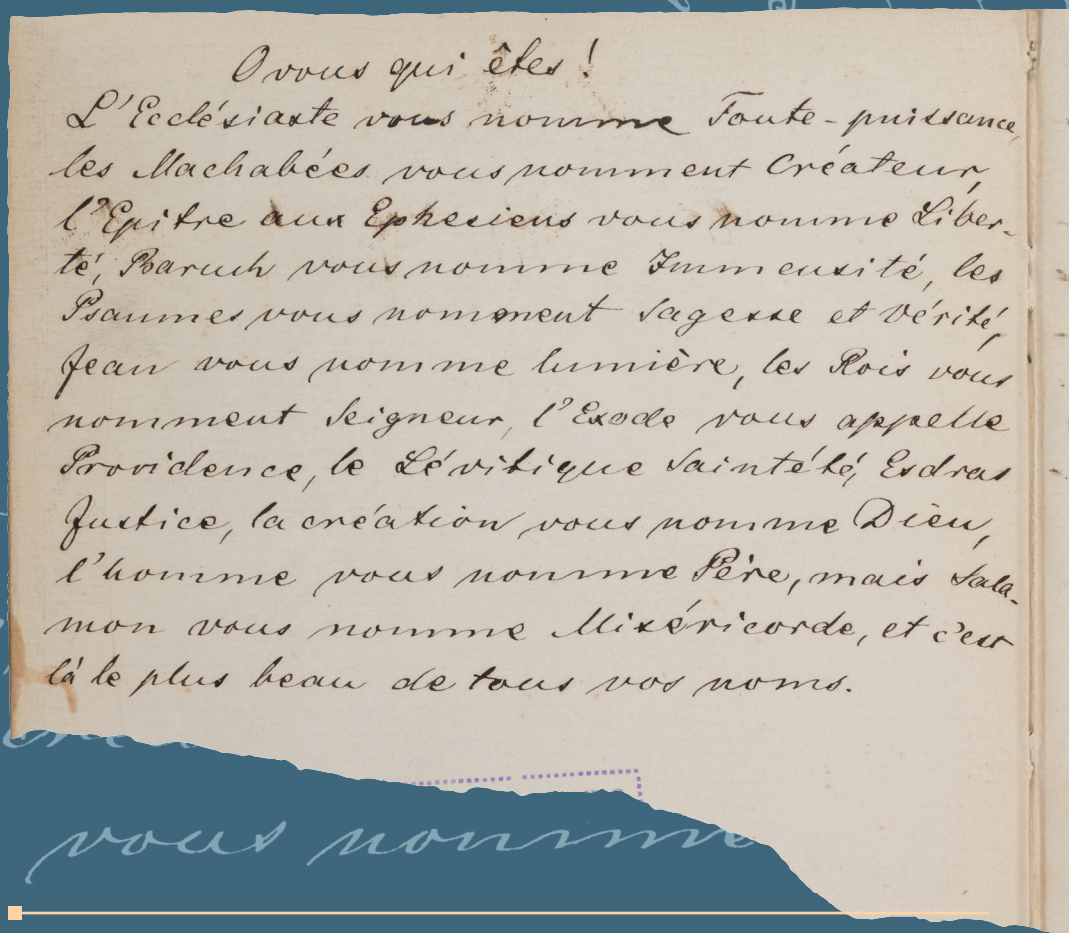 O vous qui êtes!
L'Ecclésiaste vous nomme Toute-puissance,
les Machabées vous nomment Créateur,
l'Epitre aux Ephesiens vous nomme Liber-
té, Baruch vous nomme Immensité, les
Psaumes vous nomment Sagesse et Vérité,
Jean vous nomme lumière, les Rois vous
nomment Seigneur, l'Exode vous appelle
Providence, le Lévitique Sainteté, Esdras
Justice, la création vous nomme Dieu,
l'homme vous nomme Père, mais Salo-
mon vous nomme Miséricorde, et c'est
là le plus beau de tous vos noms.
vous nomme